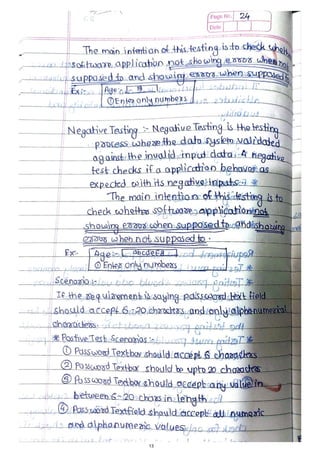 Page No. 24
Date
The main intention of this testing is to check whether
software application not showing error when not
supposed to and showing error when supposed
Ex:- Age:- 9
① Enter only numbers
Negative Testing :- Negative Testing is the testing
process where the data system validated
against the invalid input data. A negative
test checks if a application behavor as
expected with its negative Inputs.
The main intention of this testing is to
check whether software application not
showing error when supposed to and showing
error when not supposed to.
Ex- Age:- abcdeEB
① Enter only numbers
Scenario :-
If the requirement is saying password text field
should accept 6-20 charactrs and only alphanumerical
characters.
* Positive Test Scenarios :-
① Password Textbox should accept 6 charactrs
② Password Textbox should be upto 20 charactrs
③ Password Textbox should accept any value in
between 6-20 chars in length
④ Password Textfield should accept all numeric
and alphanumeric values
13